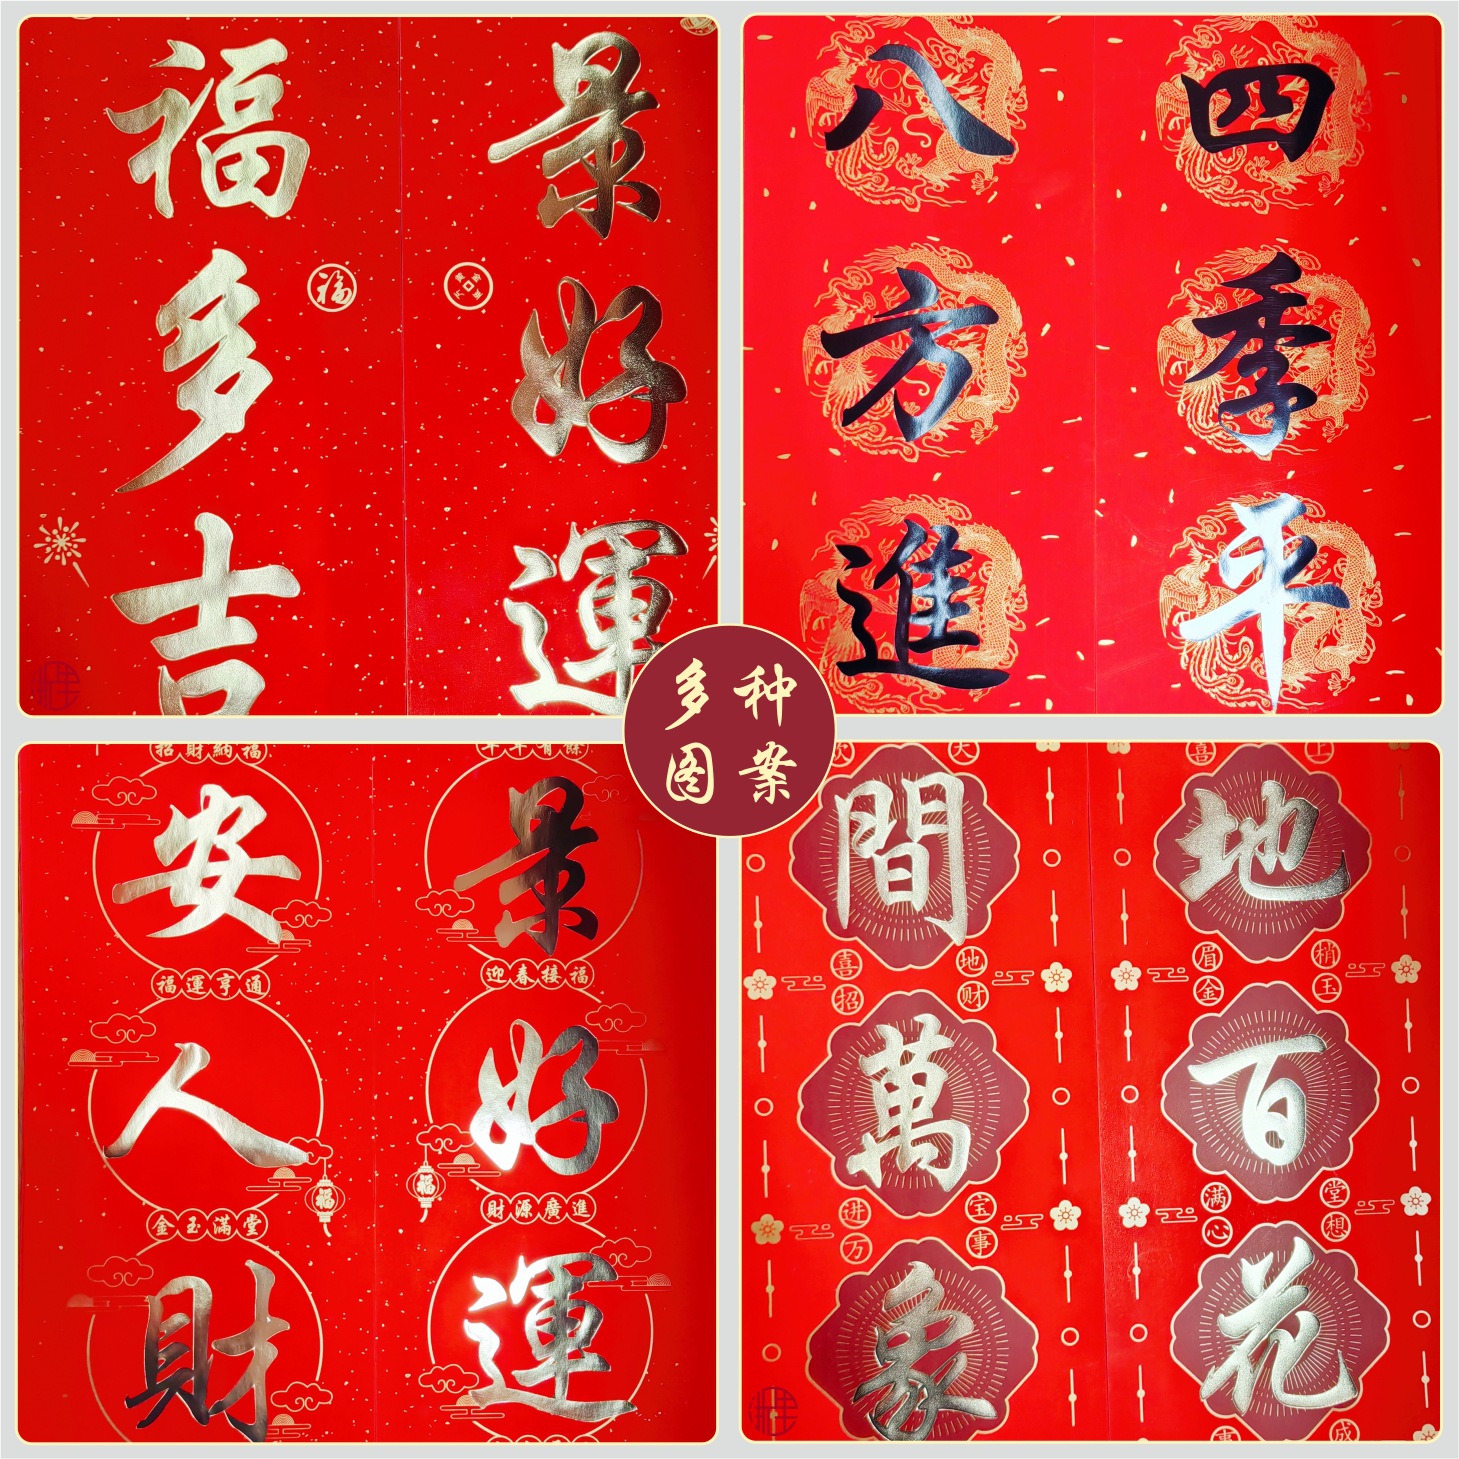 福多吉
福
景好運
八方進
四季平
多种
图案
招財納福
安人財
福運亨通
金玉滿堂
福
年年有餘
景好運
迎春接福
財源廣進
福
間萬象
喜地
招财
进宝
万事
地百花
喜上
眉梢
金玉
满堂
心想
事成